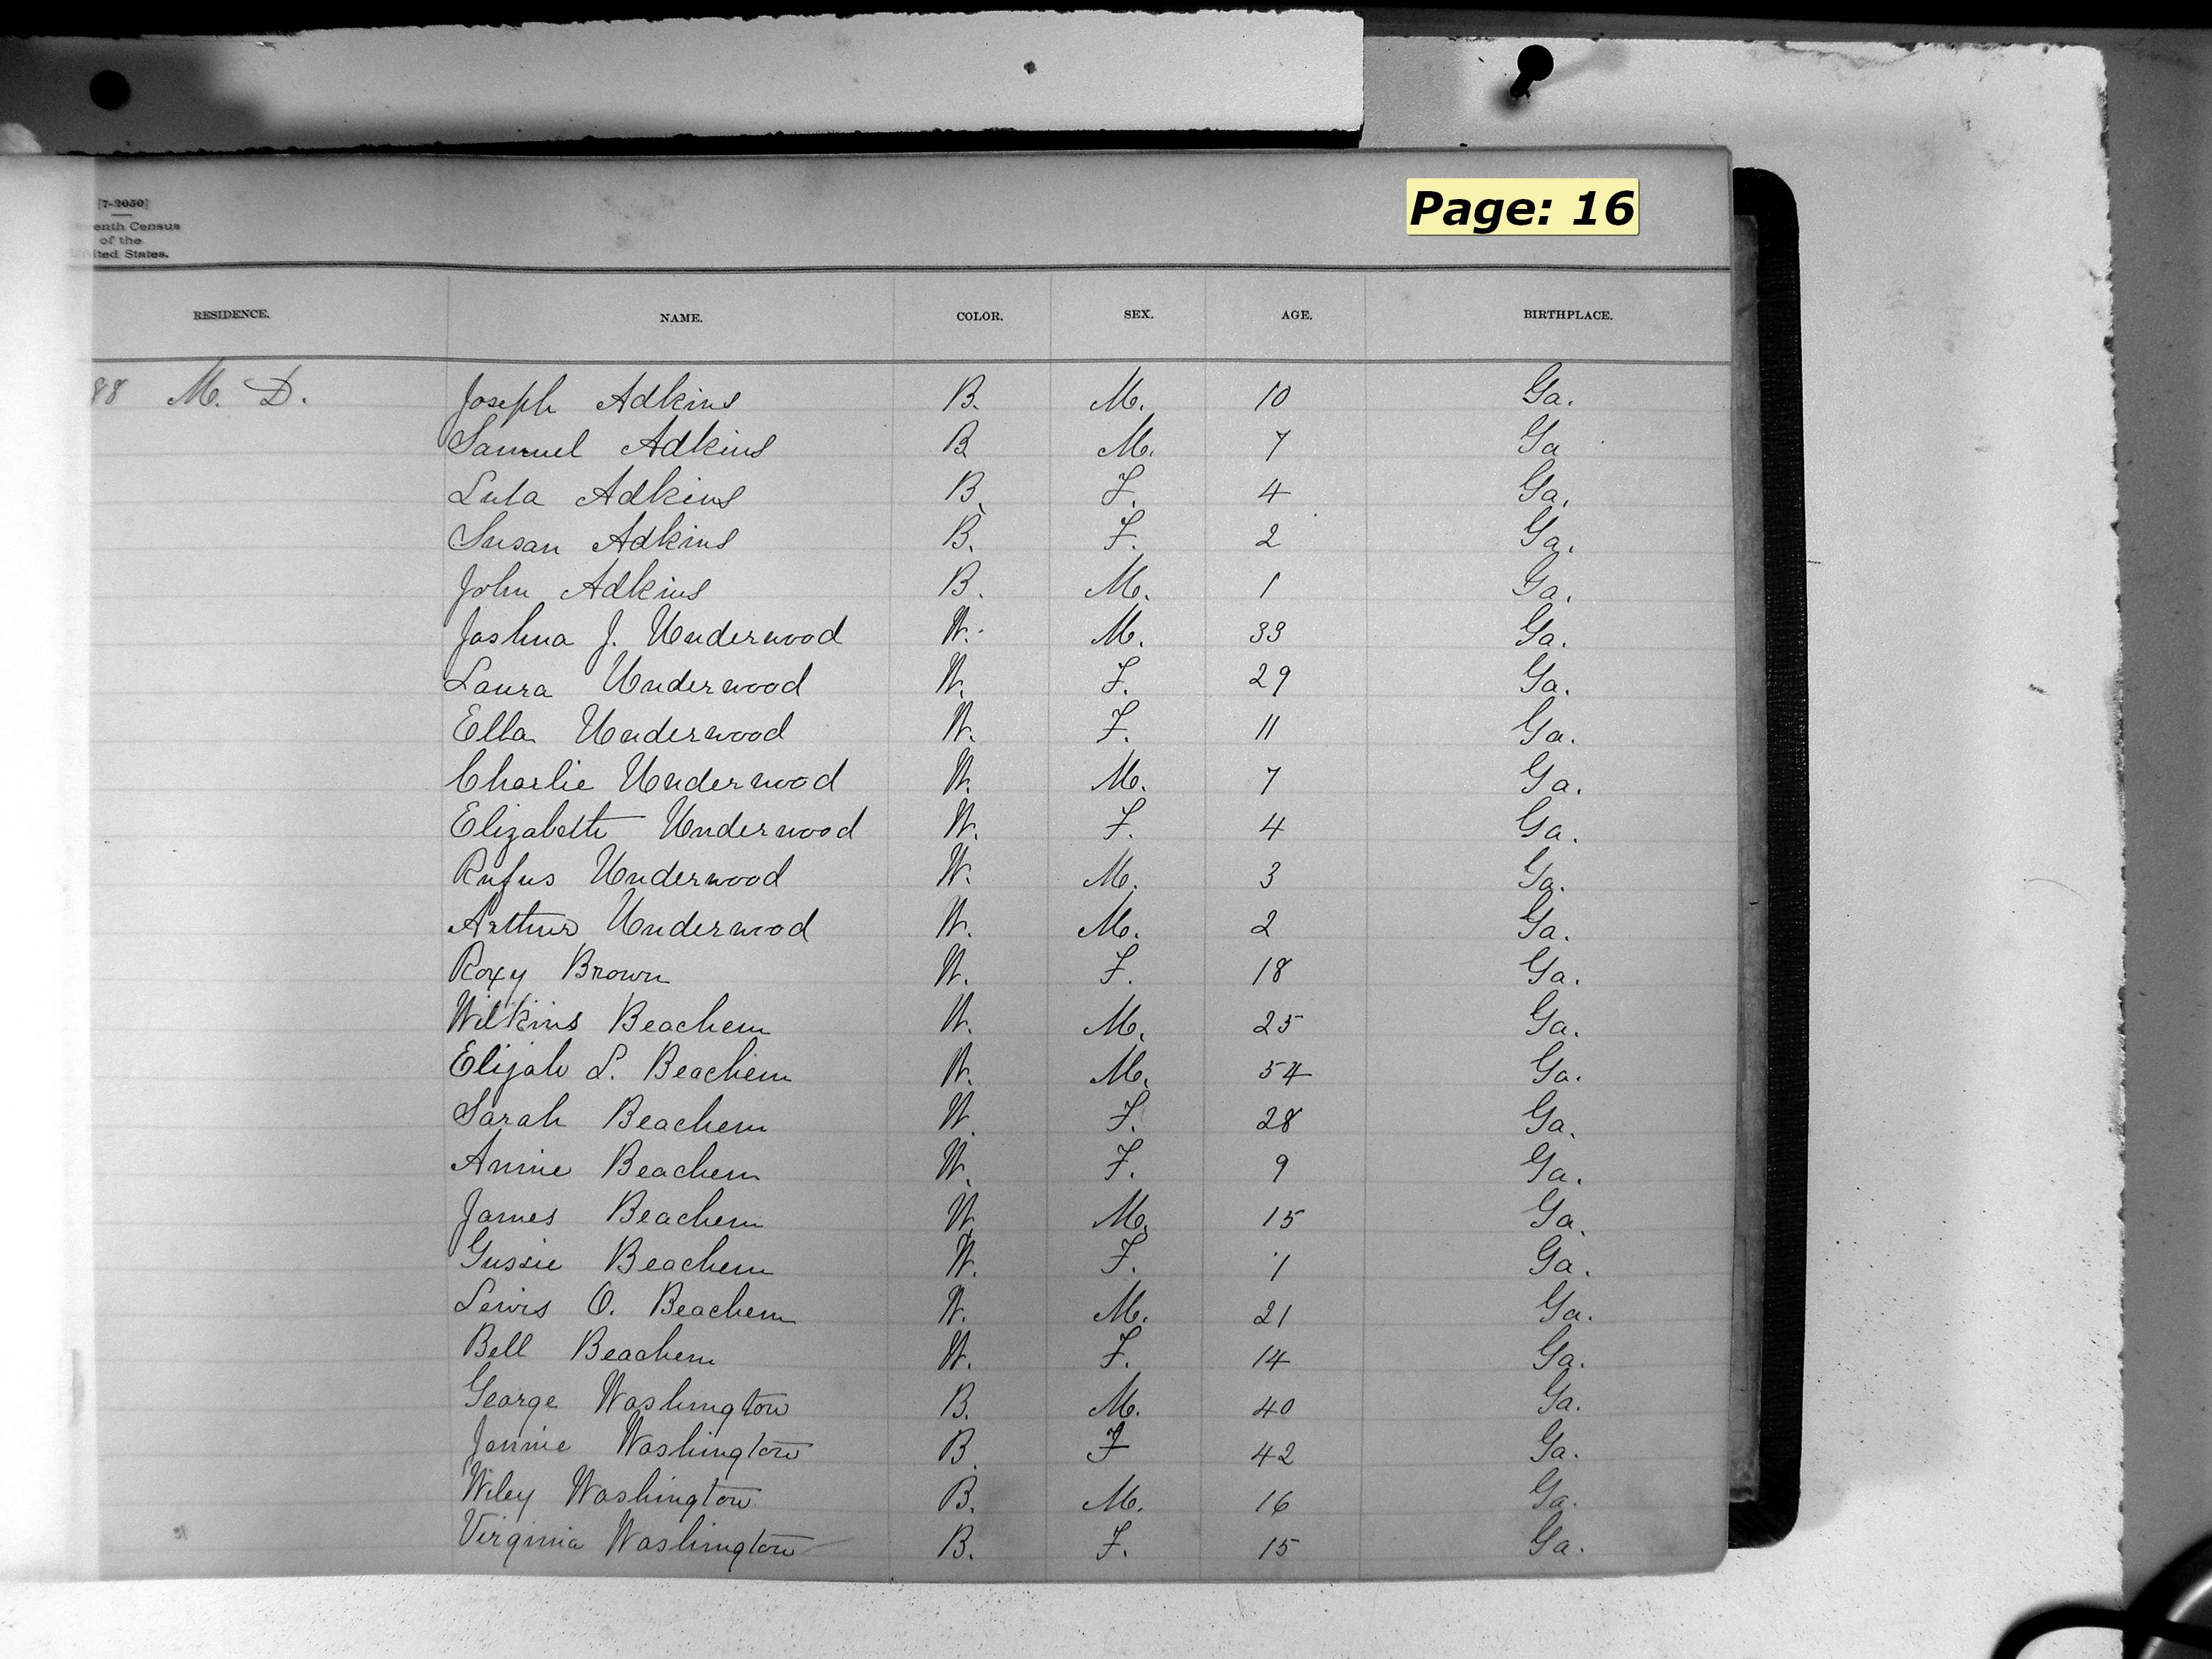 Page: 16
[7-2050]
enth Census
of the
ited States.
RESIDENCE. NAME. COLOR. SEX. AGE. BIRTHPLACE.
88 M. D. Joseph Adkins B. M. 10 Ga.
Samuel Adkins B M. 7 Ga
Lula Adkins B. F. 4 Ga.
Susan Adkins B. F. 2 Ga.
John Adkins B. M. 1 Ga.
Joshua J. Underwood W. M. 33 Ga.
Laura Underwood W. F. 29 Ga.
Ella Underwood W. F. 11 Ga.
Charlie Underwood W. M. 7 Ga.
Elizabeth Underwood W. F. 4 Ga.
Rufus Underwood W. M. 3 Ga.
Arthur Underwood W. M. 2 Ga.
Roxy Brown W. F. 18 Ga.
Wilkins Beachem W. M. 25 Ga.
Elijah L. Beachem W. M. 54 Ga.
Sarah Beachem W. F. 28 Ga.
Annie Beachem W. F. 9 Ga.
James Beachem W. M. 15 Ga.
Gussie Beachem W. F. 1 Ga.
Lewis O. Beachem W. M. 21 Ga.
Bell Beachem W. F. 14 Ga.
George Washington B. M. 40 Ga.
Jennie Washington B. F 42 Ga.
Wiley Washington B. M. 16 Ga.
Virginia Washington B. F. 15 Ga.